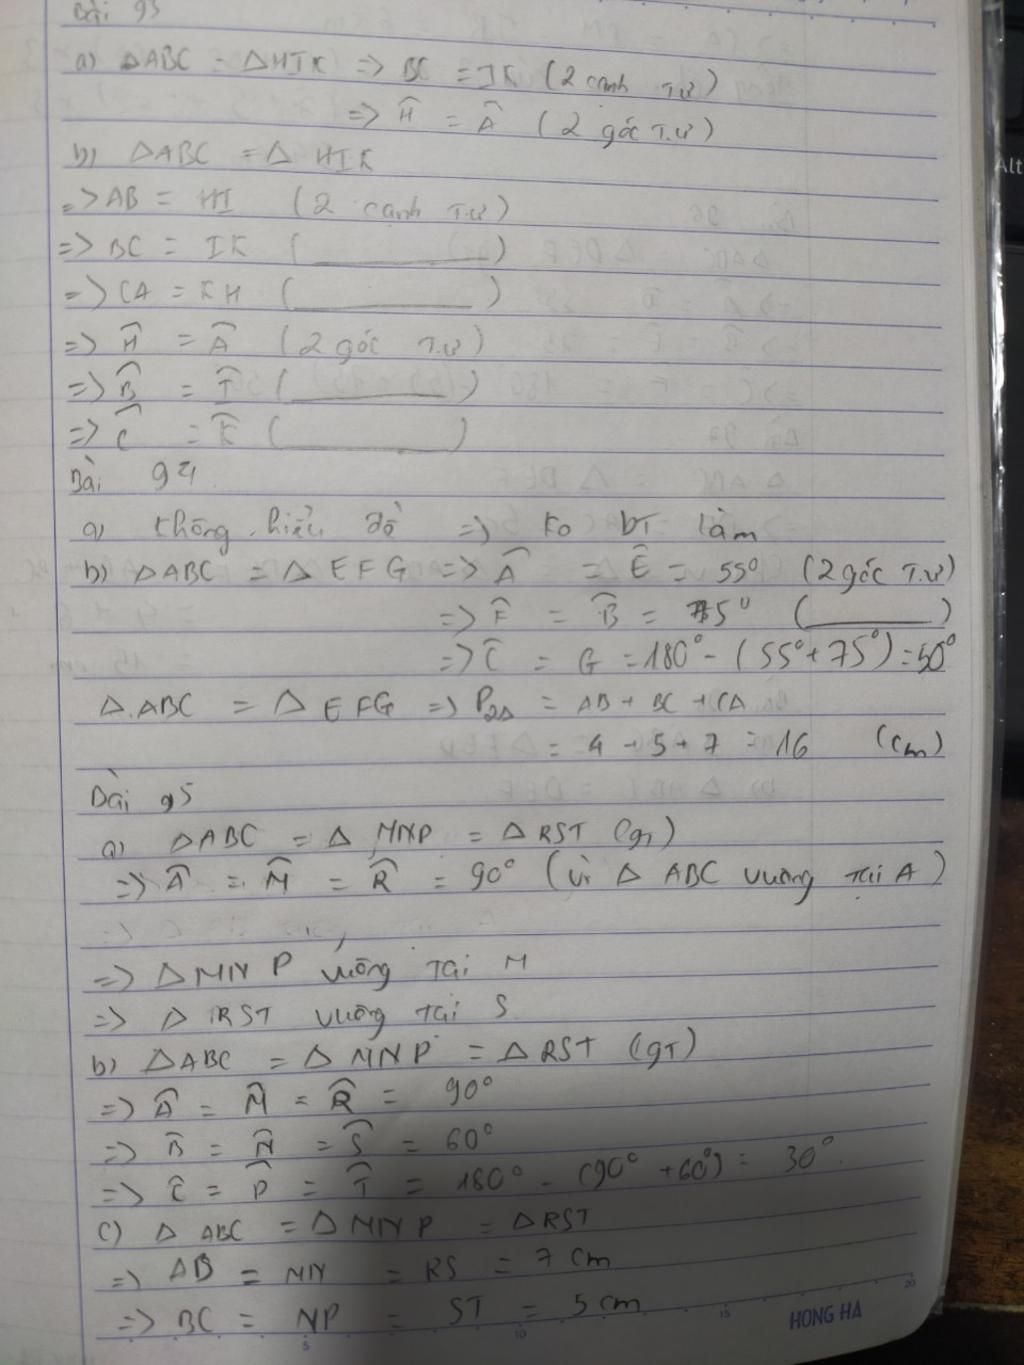 Bài 93
a) △ABC = △HIK => BC = IK (2 cạnh T.ư)
=> Ĥ = Â (2 góc T.ư)
b) △ABC = △ HIK
=> AB = HI (2 cạnh T.ư)
=> BC = IK (________)
=> CA = KH (________)
=> Ĥ = Â (2 góc T.ư)
=> B̂ = Î (________)
=> Ĉ = K̂ (________)
Bài 94
a) Không hiểu đề => Ko bT làm
b) △ABC = △EFG => Â = Ê = 55° (2 góc T.ư)
=> F̂ = B̂ = 75° (________)
=> Ĉ = G = 180° - (55° + 75°) = 50°
△ABC = △EFG => P2△ = AB + BC + CA
= 4 + 5 + 7 = 16 (cm)
Bài 95
a) △ABC = △ MNP = △RST (gT)
=> Â = M̂ = R̂ = 90° (vì △ ABC vuông tại A)
=> △MNP vuông tại M
=> △ RST vuông tại S
b) △ABC = △MNP = △RST (gT)
=> Â = M̂ = R̂ = 90°
=> B̂ = N̂ = Ŝ = 60°
=> Ĉ = P̂ = T̂ = 180° - (90° + 60°) = 30°
c) △ ABC = △MNP = △RST
=> AB = MN = RS = 7 cm
=> BC = NP = ST = 5 cm
5 10 15 20
HONG HA
Alt